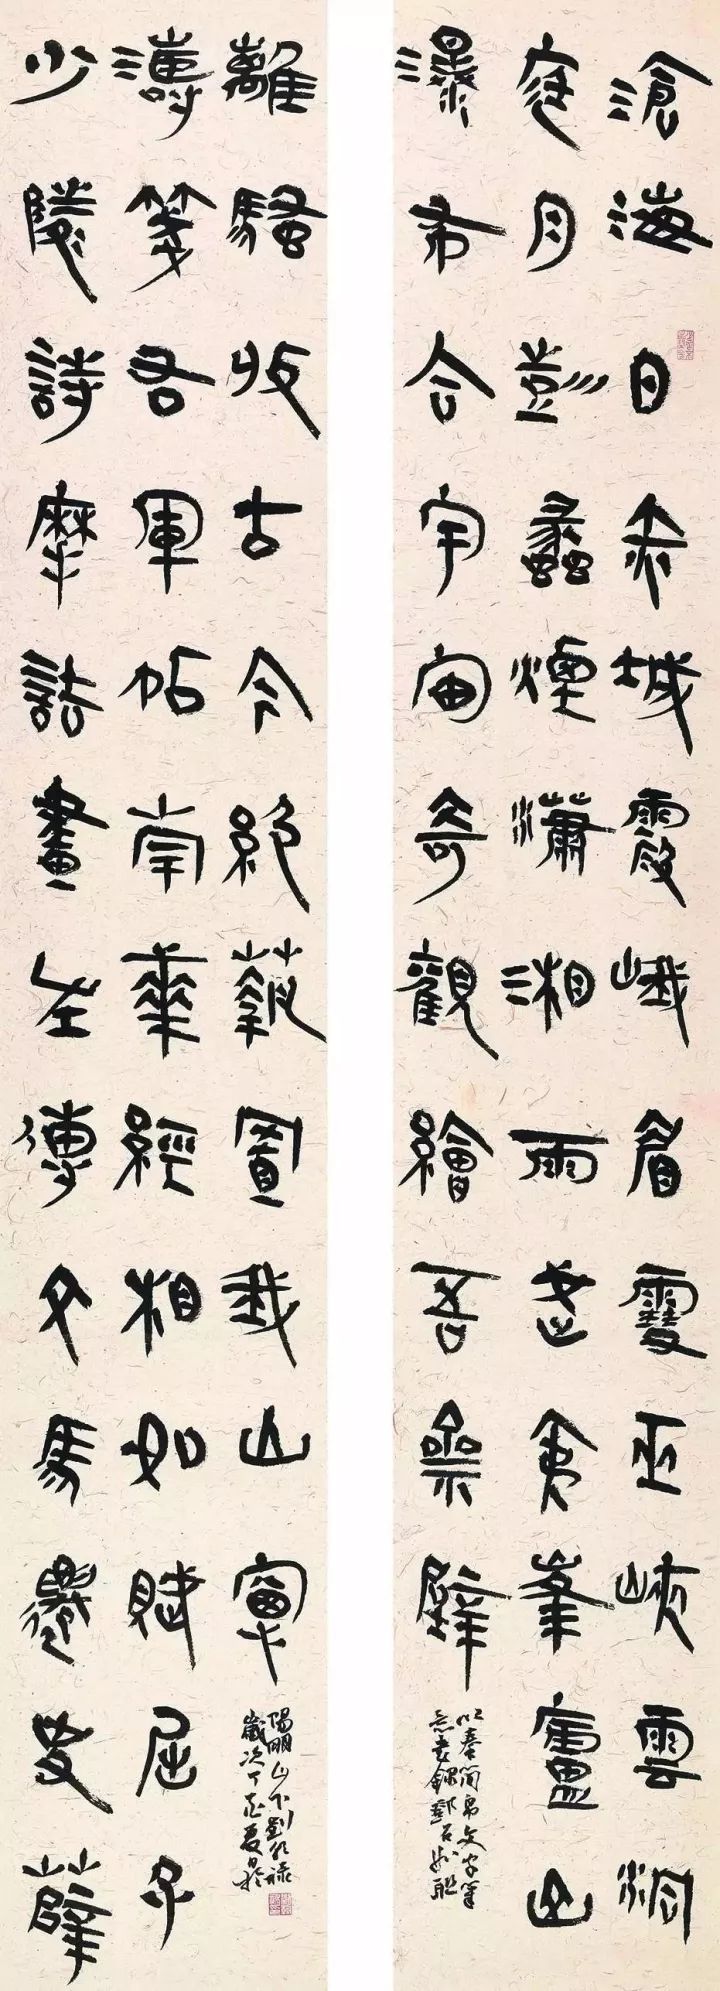 滄海日赤城霞峨眉雪巫峽雲洞
庭月彭蠡煙瀟湘雨武夷峯廬山
瀑布合宇宙奇觀繪吾齋壁
以秦簡帛文字筆
意書錄鄧石如聯
少陵詩摩詰畫左傳文馬遷史薛
濤箋右軍帖南華經相如賦屈子
離騷收古今絕藝置我山窗
歲次丁酉夏日於
陽明山下劉